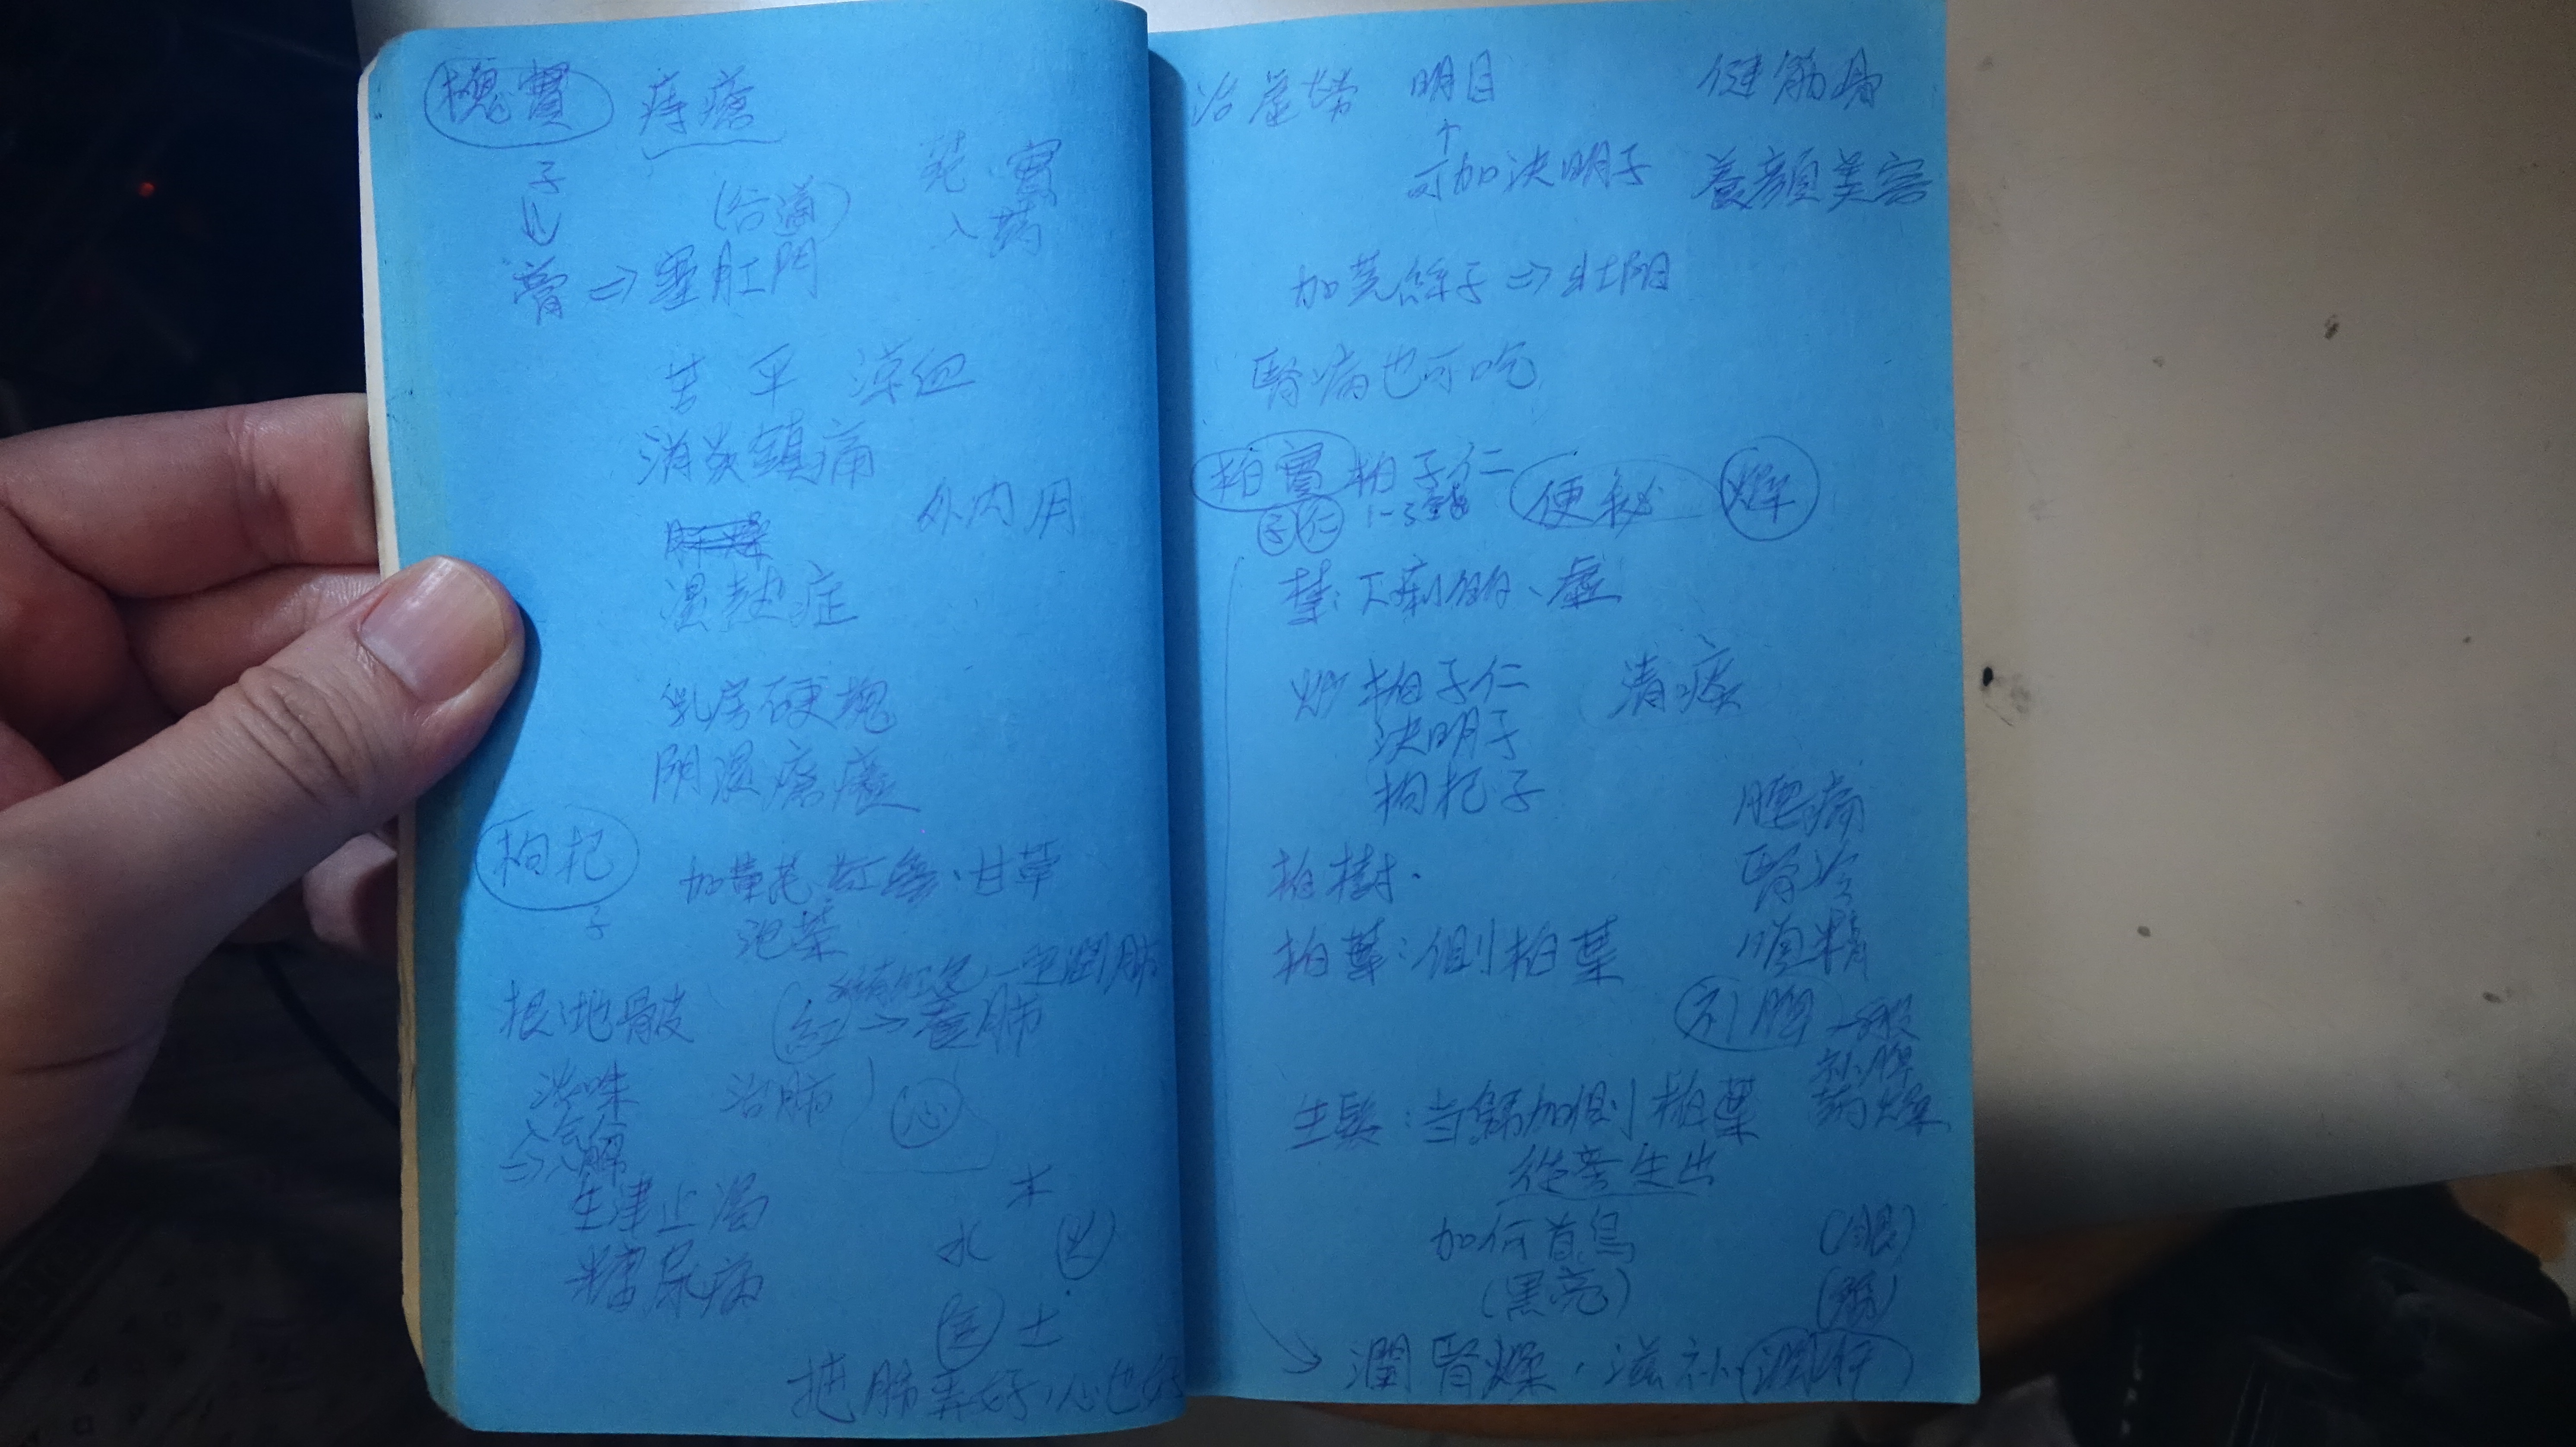 槐實 痔瘡
子
(谷道) 花、實
入药
膏 ⇒ 塞肛門
苦 平 涼血
消炎鎮痛
外內用
濕熱症
乳房硬塊
陰濕癢
枸杞
子
加黃芪 紅棗、甘草
泡茶
根:地骨皮
紅 → 養肺
治咳 治肺
心
⇒ 解
生津止渴
糖尿病
木
水 火
金 土
把肺弄好,心也好
治虛勞 明目 健筋骨
↑
可加決明子 養顏美容
加菟絲子 ⇒ 壯陽
腎病也可吃
柏實 柏子仁 便秘 燥
子 仁 1-3錢
禁:下痢、虛
炒柏子仁 清痰
決明子
枸杞子
腰痛
柏樹. 腎冷
柏葉:側柏葉
一般
補脾
药燥
生髮:當歸加側柏葉
從旁生出
加何首烏 (眼)
(黑亮)
→ 潤腎燥,滋補 潤肝